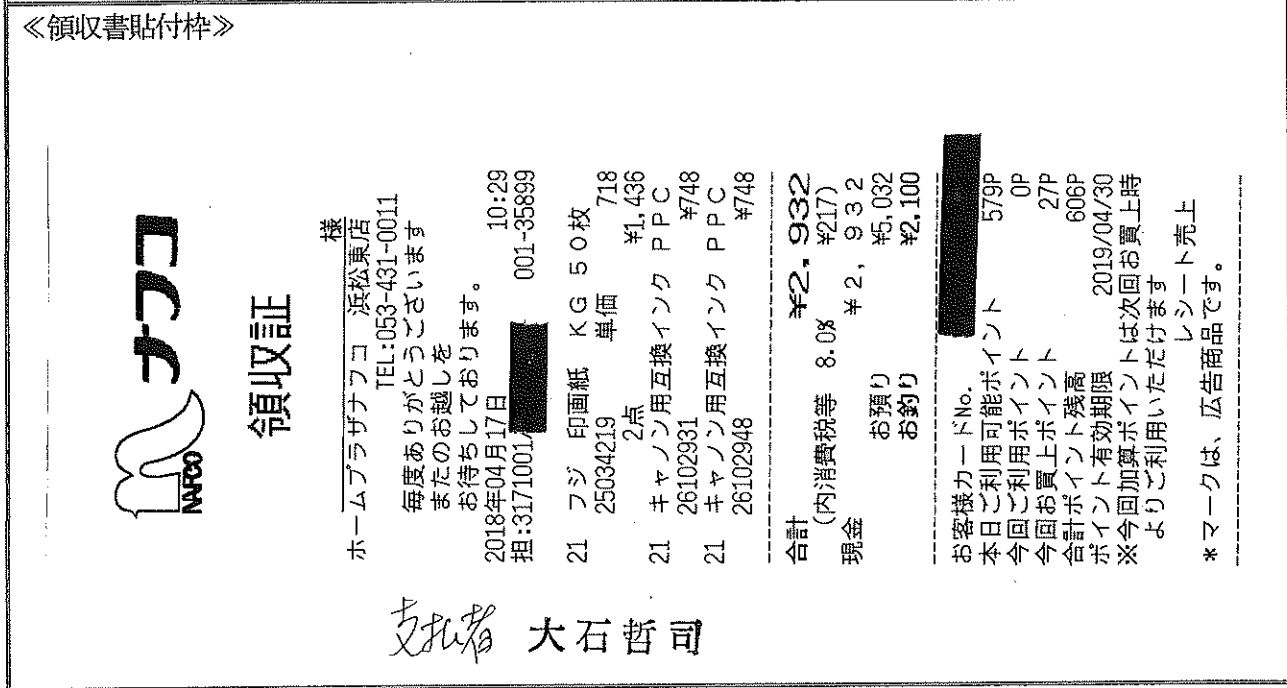 ≪領収書貼付枠≫
NAFCO
ナフコ
領収証
様
ホームプラザナフコ 浜松東店
TEL:053-431-0011
毎度ありがとうございます
またのお越しを
お待ちしております。
2018年04月17日 10:29
担:3171001 001-35899
21 フジ 印画紙 KG 50枚
25034219 単価 718
2点 ¥1,436
21 キャノン用互換インク PPC
26102931 ¥748
21 キャノン用互換インク PPC
26102948 ¥748
合計 ¥2,932
(内消費税等 8.0% ¥217)
現金 ¥2,932
お預り ¥5,032
お釣り ¥2,100
お客様カードNo.
本日ご利用可能ポイント 579P
今回ご利用ポイント 0P
今回お買上ポイント 27P
合計ポイント残高 606P
ポイント有効期限 2019/04/30
※今回加算ポイントは次回お買上時
よりご利用いただけます
レシート売上
*マークは、広告商品です。
支払者 大石哲司